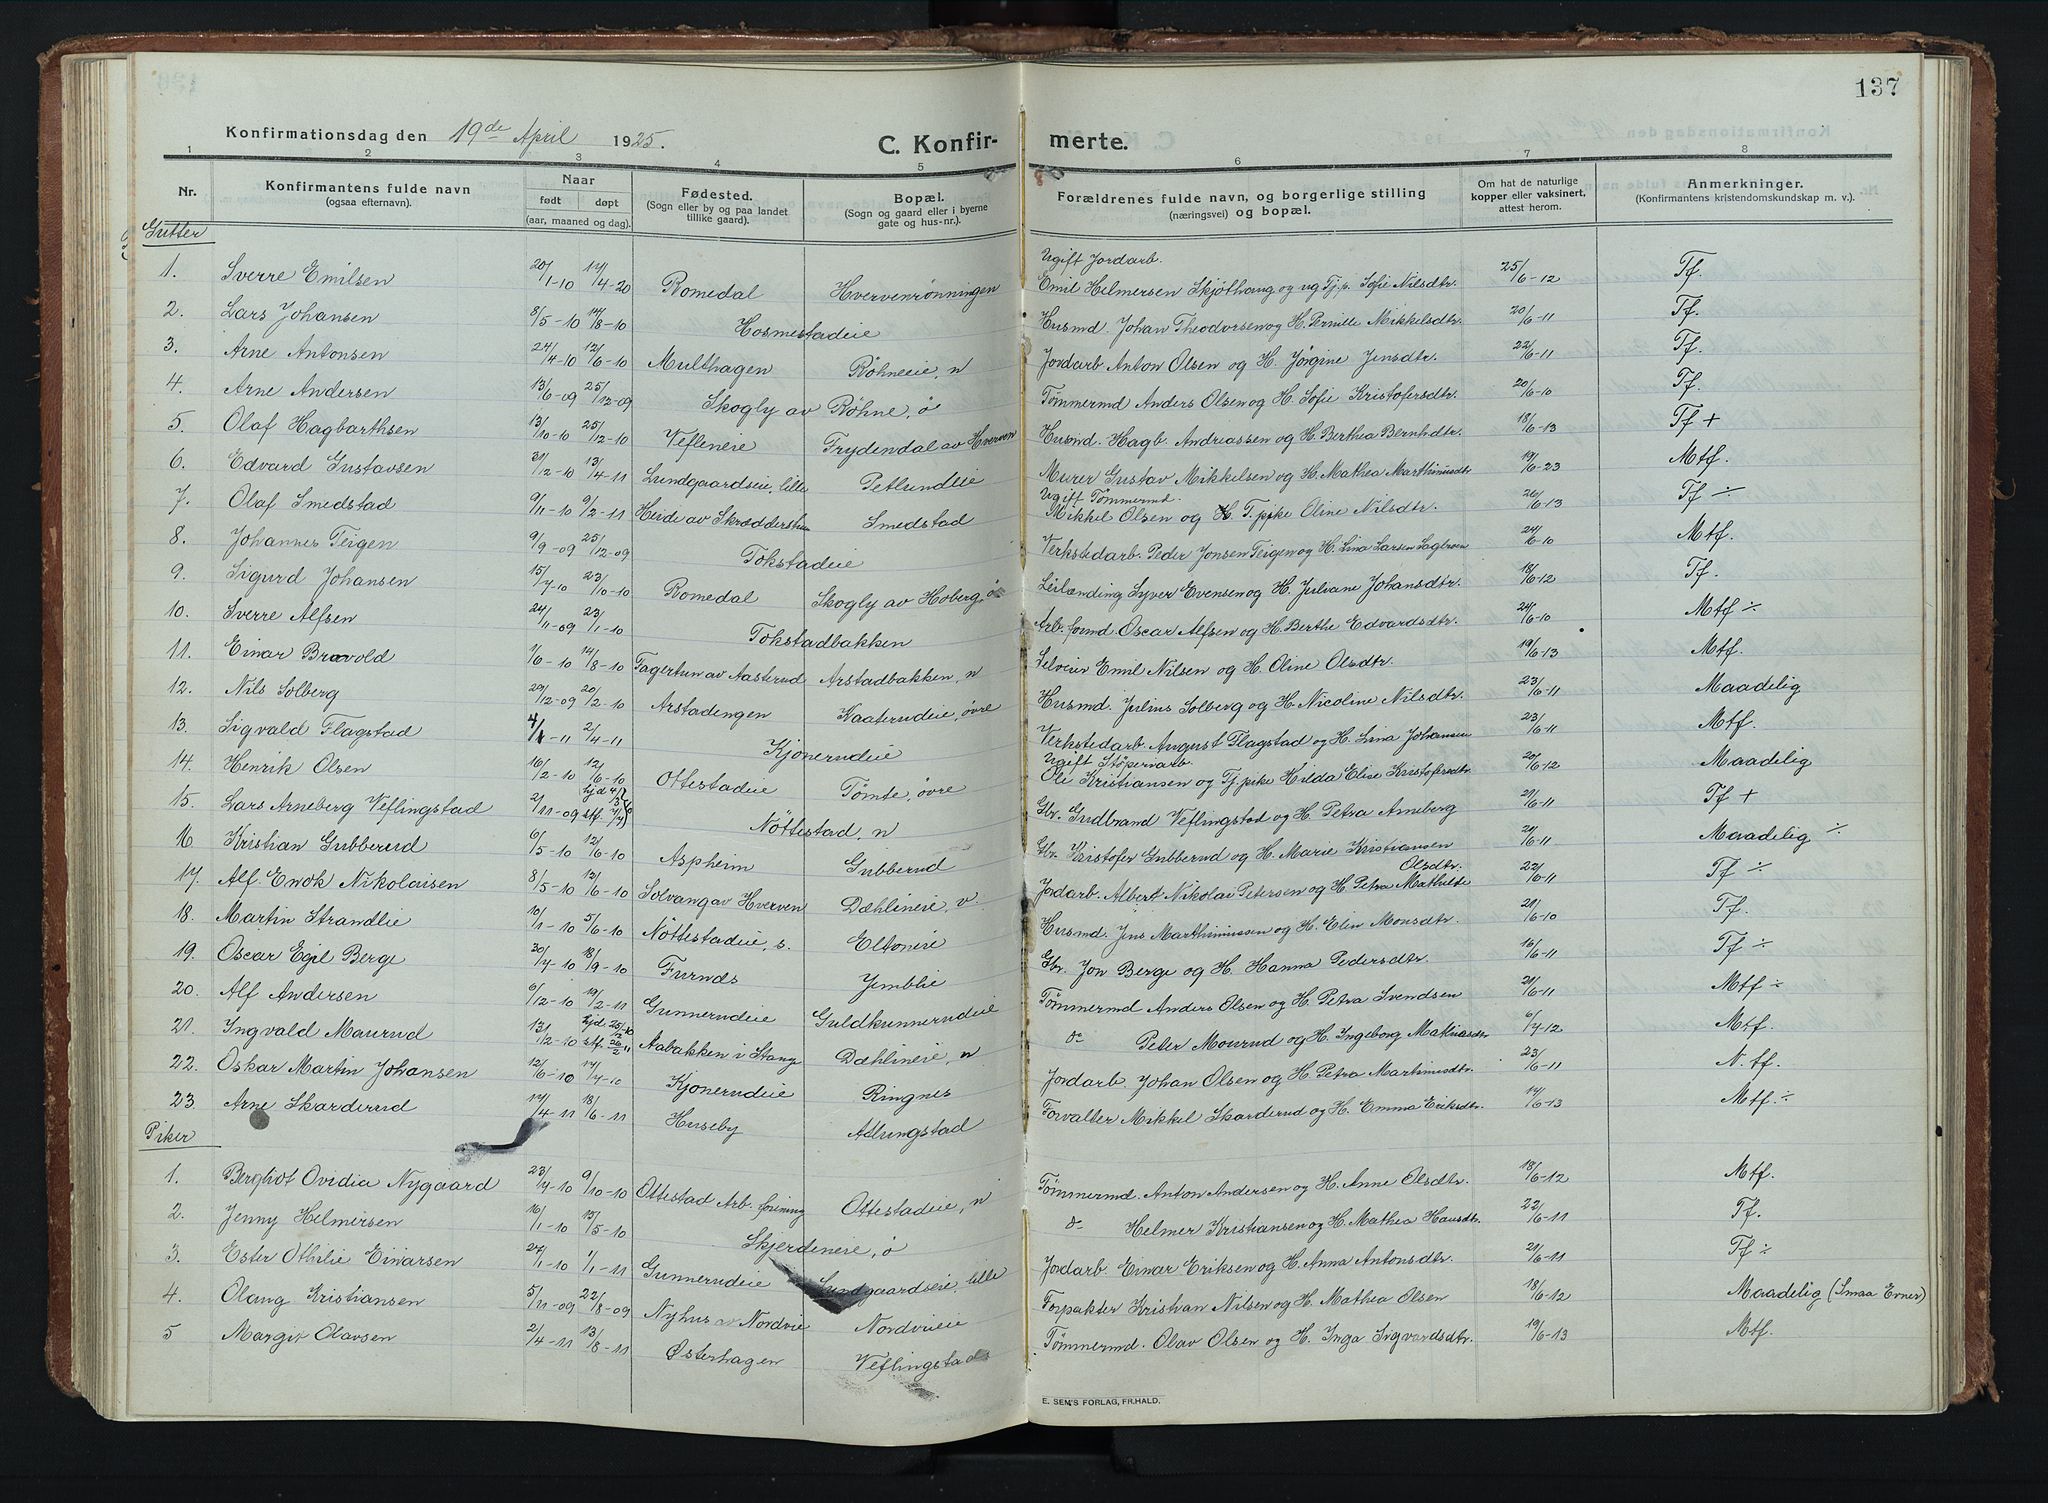 137
Konfirmationsdag den 19de April 1925.
C. Konfir- merte.
1 2 3 4 5 6 7 8
Nr. Konfirmantens fulde navn (ogsaa efternavn). Naar født døpt (aar, maaned og dag). Fødested. (Sogn eller by og paa landet tillike gaard). Bopæl. (Sogn og gaard eller i byerne gate og hus-nr.). Forældrenes fulde navn, og borgerlige stilling (næringsvei) og bopæl. Om hat de naturlige kopper eller vaksinert, attest herom. Anmerkninger. (Konfirmantens kristendomskundskap m. v.).
Gutter
1. Sverre Emilsen 20/1-10 17/4-20 Romedal Hvervenrønningen Ugift Jordarb. Emil Helmersen Skjøthaug og ug Tj.p. Sofie Nilsdtr. 25/6-12 Tf.
2. Lars Johansen 8/5-10 14/8-10 Hosmestadeie Husmd. Johan Theodorsen og H. Pernille Mikkelsdtr. 20/6-11 Tf.
3. Arne Antonsen 24/4-10 12/6-10 Multhagen Røhneeie, n Jordarb. Anton Olsen og H. Jørgine Jensdtr. 22/6-11 Tf.
4. Arne Andersen 13/6-09 25/12-09 Skogly av Røhne, ø Tømmermd Anders Olsen og H. Sofie Kristofersdtr. 20/6-10 Tf.
5. Olaf Hagbarthsen 13/10-10 25/12-10 Vefleneie Frydendal av Hverven Husmd. Hagb. Andreassen og H. Berthea Bernhdtr. 18/6-13 Tf +
6. Edvard Gustavsen 31/12-10 13/4-11 Lundgaardseie, lille Petlundeie Murer Gustav Mikkelsen og H. Mathea Marthinusdtr 19/6-23 Mtf.
7. Olaf Smedstad 9/11-10 9/2-11 Heide av Skræddershuen Smedstad Ugift Tømmermd. Mikkel Olsen og T. pike Oline Nilsdtr. 26/6-13 Tf ÷
8. Johannes Teigen 9/9-09 25/12-09 Tokstadeie Verkstedarb. Peder Jonsen Teigen og H. Lina Larsen Sagbroen 24/6-10 Mtf.
9. Sigurd Johansen 15/7-10 23/10-10 Romedal Skogly av Hoberg, ø Leilænding Syver Evensen og H. Juliane Johansdtr. 18/6-12 Tf.
10. Sverre Alfsen 24/11-09 23/1-10 Tokstadbakken Arb. formd. Oscar Alfsen og H. Berthe Edvardsdtr. 24/6-10 Mtf ÷
11. Einar Bravold 1/6-10 14/8-10 Fagertun av Aasterud Arstadbakken, n Selveier Emil Nilsen og H. Oline Olsdtr. 19/6-13 Mtf.
12. Nils Solberg 22/12-09 20/2-10 Arstadengen Kaaterudeie, øvre Husmd. Julius Solberg og H. Nicoline Nilsdtr. 23/6-11 Maadelig
13. Sigvald Flagstad 4/1-11 2/4-11 Kjonerudeie Verkstedarb. August Flagstad og H. Lina Johansen 23/6-11 Mtf.
14. Henrik Olsen 16/2-10 12/6-10 Ottestadeie Tømte, øvre Ugift Støperiarb. Ole Kristiansen og Tj.pike Hilda Elise Kristofersdtr. 20/6-12 Maadelig
15. Lars Arneberg Veflingstad 2/11-09 Nøttestad, n Gbr. Gudbrand Veflingstad og H. Petra Arneberg 21/6-11 Tf +
16. Kristian Gubberud 6/5-10 12/6-10 Aspheim Gubberud Gbr. Kristofer Gubberud og H. Marie Kristiansen 21/6-11 Maadelig ÷
17. Alf. Enok Nikolaisen 8/5-10 12/6-10 Solvang av Hverven Dæhlineie, v. Jordarb. Albert Nikolai Petersen og H. Petra Mathilde Olsdtr. 22/6-11 Tf ÷
18. Martin Strandlie 10/1-10 5/6-10 Nøttestadeie, s. Eltoneie Husmd. Jens Marthinussen og H. Elin Monsdtr. 21/6-10 Tf.
19. Oscar Egil Berge 30/7-10 18/9-10 Furnds Jemblie Gbr. Jon Berge og H. Hanna Pedersdtr. 16/6-11 Tf ÷
20. Alf Andersen 6/12-10 19/2-11 Gunnerudeie Guldkunnerudeie Tømmermd Anders Olsen og H. Petra Svendsen 21/6-11 Mtf ÷
21. Ingvald Maurud 13/12-10 Aabakken i Stange Dæhlineie, n do Peter Mourud og H. Ingeborg Mathiasdtr 6/7-12 Mtf.
22. Oskar Martin Johansen 12/6-10 17/7-10 Kjonerudeie Ringnes Jordarb. Johan Olsen og H. Petra Martinusdtr. 23/6-11 N. tf.
23. Arne Skarderud 17/4-11 18/6-11 Huseby Atlungstad Forvalter Mikkel Skarderud og H. Emma Eriksdtr. 14/6-13 Mtf. ÷
Piker
1. Bergliot Ovidia Nygaard 23/7-10 9/10-10 Ottestad Arb. forening Ottestadeie, n Tømmermd. Anton Andersen og H. Anne Olsdtr. 18/6-12 Mtf.
2. Jenny Helmersen 16/1-10 15/5-10 Skjerdineie, ø do Helmer Kristiansen og H. Mathea Hansdtr. 22/6-11 Tf.
3. Ester Othilie Einarsen 27/1-10 1/1-11 Gunnerudeie Lundgaardseie, lille Jordarb. Einar Eriksen og H. Anna Antonsdtr. 21/6-11 Tf ÷
4. Olaug Kristiansen 5/11-09 22/8-09 Nyhus av Nordvie Nordvieie Forpakter Kristian Nilsen og H. Mathea Olsen 18/6-12 Maadelig (Smaa Evner)
5 Margit Olavsen 2/4-11 13/8-11 Østerhagen Veflingstad Tømmermd. Olav Olsen og H. Inga Ingvardsdtr. 19/6-13 Mtf.
E. SEM'S FORLAG, FR.HALD.